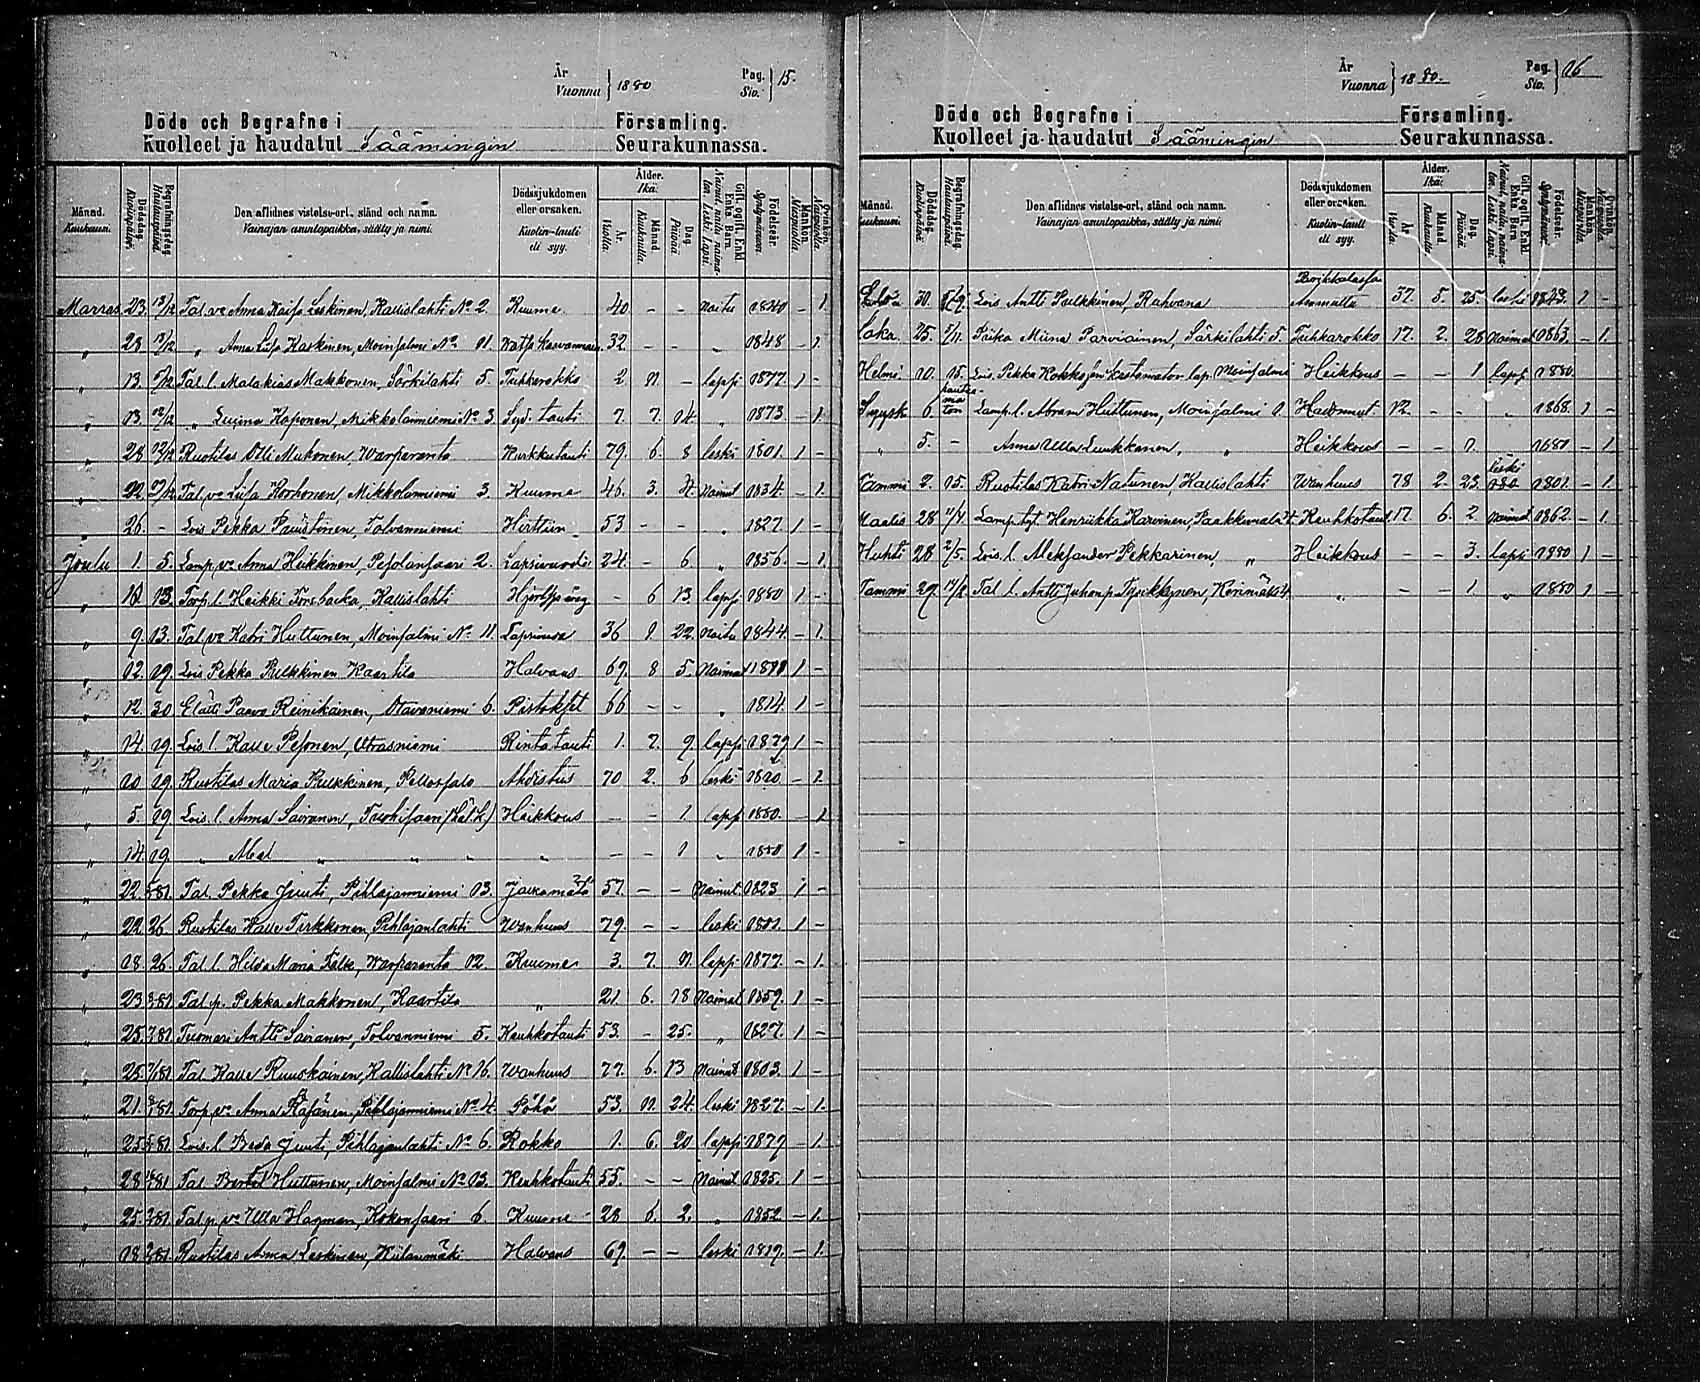 År Vuonna } 1880 Pag. Siv. } 15.
Döde och Begrafne i Församling.
Kuolleet ja haudatut Säämingin Seurakunnassa.
Månad. Kuukausi. Dödsdag. Kuolinpäivä. Begrafningsdag. Hautauspäivä. Den aflidnes vistelse-ort, stånd och namn. Vainajan asuntopaikka, sääty ja nimi. Dödssjukdomen eller orsaken. Kuolin-tauti eli syy. Ålder. Ikä: År. Vuotta. Månad. Kuukautta. Dag. Päivää. Gift, ogift, Enkl. Enka, Barn. Födelseår. Syntymävuosi. Mankön. Miespuolta. Qvinkön. Naispuolta.
Marras 23. 13/12 Tal. vo Anna Kaisa Leskinen, Kallislahti No 2. Kuume 40 - - Naitu 1840 - 1
„ 28 12/12 „ Anna Liisa Kaskinen, Moinsalmi No 11. 32. - - „ 1848 - 1
„ 13. Tal. l. Malakias Makkonen, Särkilahti 5. Tuhkarokko 2 11. - lapsi 1877 1 -
„ 13. 12/12 „ Kaponen, Mikkolanniemi No 3. Syd. tauti 7. 7. 14. „ 1873 - 1.
„ 28 12/12 Ruotilas Olli Muhonen, Warparanta Kurkkutauti 79. 6. 8 leski 1801. 1 -
„ 22. Tal. vo Liisa Korhonen, Mikkolanniemi 3. Kuume 46. 3. 4. Naimat 1834. - 1.
„ 26. - Lois Pekka Puustinen, Tolvanniemi Hirttiin 53 - - „ 1827. 1 -
Joulu 1. 5. Lamp. vo Anna Heikkinen, Pesolansaari 2. Lapsivuode 24. - 6 „ 1856. - 1
„ 13. Torp. l. Heikki Forsbacka, Kallislahti - 6 13. lapsi 1880 1 -
„ 9. 13. Tal. vo Katri Huttunen, Moinsalmi No 11. 36 1. 22. Naitu 1844 - 1.
„ 12. 19. Lois Pekka Pulkkinen Kaartila Halvaus 69. 8 5. Naimat 1811 1 -
„ 12. 30 Paavo Reinikainen, 6. Pistokset 66 - - „ 1814. 1 -
„ 14. 19. Lois. l. Kalle Pesonen, Utrasniemi Rintatauti 1. 7. 9. lapsi 1879 1 -
„ 10 19. Ruotilas Maria Pulkkinen, Pellossalo Ahdistus 70 2. 6 leski 1810. - 1
„ 5. 19. Lois. l. Anna Sairanen, Heikkous - - 1 lapsi 1880. - 1
„ 14. 19 „ Abel „ „ „ - - 1 „ 1880 1 -
„ 22. Tal. Pekka Juuti, Pihlajanniemi 13. 57. - - Naimat 1823 1 -
„ 22 26. Ruotilas Kalle Tirkkonen, Pihlajanlahti Wanhuus 79. - - leski 1801. 1 -
„ 18. 26 Tal. l. Hilda Maria Falk, Warparanta 12. Kuume 3. 7. 11 lapsi 1877. - 1.
„ 23. Tal. p. Pekka Makkonen, Kaartila „ 21 6. 18 Naimat 1859. 1 -
„ 25. Tuomari Antti Sairanen, Tolvanniemi 5. Keuhkotauti 53. - 25. „ 1827. 1 -
„ 25. Tal. Kalle Ruuskainen, Kallislahti No 16. Wanhuus 77. 6. 13 Naimat 1803. 1 -
„ 21. Torp. vo Anna Räsänen, Pihlajanniemi No 4. Pöhö 53. 11. 24. leski 1827. - 1.
„ 25. Lois. l. Beda Juuti, Pihlajanlahti No 6. Rokko 1. 6. 20 lapsi 1879 - 1.
„ 28. Tal. Bertel Huttunen, Moinsalmi No 13. Keuhkotauti 55. - - Naimat 1825. 1 -
„ 25. Tal. p. vo Ulla Hagman, Kokonsaari 6. Kuume 28 6. 2. „ 1852. - 1.
„ 18 Ruotilas Anna Leskinen, Halvaus 69. - - leski 1819. - 1.
År Vuonna } 1880. Pag. Siv. } 16
Döde och Begrafne i Församling.
Kuolleet ja haudatut Säämingin Seurakunnassa.
Månad. Kuukausi. Dödsdag. Kuolinpäivä. Begrafningsdag. Hautauspäivä. Den aflidnes vistelse-ort, stånd och namn. Vainajan asuntopaikka, sääty ja nimi. Dödssjukdomen eller orsaken. Kuolin-tauti eli syy. Ålder. Ikä: År. Vuotta. Månad. Kuukautta. Dag. Päivää. Gift, ogift, Enkl. Enka, Barn. Födelseår. Syntymävuosi. Mankön. Miespuolta. Qvinkön. Naispuolta.
Elo 30. Lois Antti Pulkkinen, Rahvana 37. 5. 25. leski 1843. 1 -
Loka. 25. 7/11. Piika Miina Parviainen, Särkilahti 5. Tuhkarokko 17. 2. 28 Naimat 1863. - 1.
Helmi. 10. 15. Lois. Pekka kastamaton lap. Moinsalmi Heikkous - - 1 lapsi 1880.
Syysk 6. hautaamaton Lamp. l. Abram Huttunen, Moinsalmi 1. Hukkunut 12. - - „ 1868. 1 -
„ 5. - Anna Ulla Luukkanen, „ Heikkous - - 7. 1880 - 1
Tammi 2. 15. Ruotilas Katri Natunen, Kallislahti Wanhuus 78 2. 23. leski 1801. - 1
Maalis 28 11/4 Lamp. tyt Henriikka Karvinen, Keuhkotauti 17. 6. 2 Naimat 1862. - 1.
Huhti 28 2/5. Lois. l. Aleksander Pekkarinen, „ Heikkous - - 3. lapsi 1880 1 -
Tammi 29. Tal. l. Antti Juhonp. Tynkkynen, „ - - 1 „ 1880 1 -